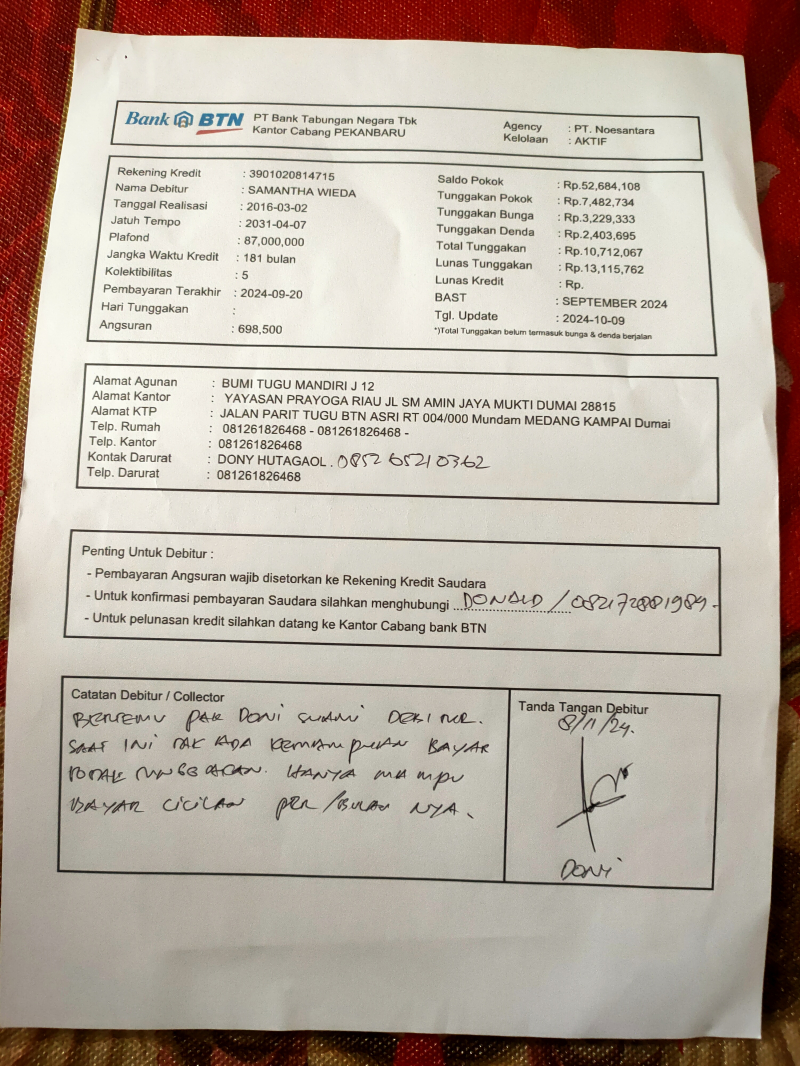 Bank BTN PT Bank Tabungan Negara Tbk
Kantor Cabang PEKANBARU
Agency : PT. Noesantara
Kelolaan : AKTIF
Rekening Kredit : 3901020814715
Nama Debitur : SAMANTHA WIEDA
Tanggal Realisasi : 2016-03-02
Jatuh Tempo : 2031-04-07
Plafond : 87,000,000
Jangka Waktu Kredit : 181 bulan
Kolektibilitas : 5
Pembayaran Terakhir : 2024-09-20
Hari Tunggakan :
Angsuran : 698,500
Saldo Pokok : Rp.52,684,108
Tunggakan Pokok : Rp.7,482,734
Tunggakan Bunga : Rp.3,229,333
Tunggakan Denda : Rp.2,403,695
Total Tunggakan : Rp.10,712,067
Lunas Tunggakan : Rp.13,115,762
Lunas Kredit : Rp.
BAST : SEPTEMBER 2024
Tgl. Update : 2024-10-09
*)Total Tunggakan belum termasuk bunga & denda berjalan
Alamat Agunan : BUMI TUGU MANDIRI J 12
Alamat Kantor : YAYASAN PRAYOGA RIAU JL SM AMIN JAYA MUKTI DUMAI 28815
Alamat KTP : JALAN PARIT TUGU BTN ASRI RT 004/000 Mundam MEDANG KAMPAI Dumai
Telp. Rumah : 081261826468 - 081261826468 -
Telp. Kantor : 081261826468
Kontak Darurat : DONY HUTAGAOL . 0852 65210362
Telp. Darurat : 081261826468
Penting Untuk Debitur :
- Pembayaran Angsuran wajib disetorkan ke Rekening Kredit Saudara
- Untuk konfirmasi pembayaran Saudara silahkan menghubungi DONALD / 082172881989 -
- Untuk pelunasan kredit silahkan datang ke Kantor Cabang bank BTN
Catatan Debitur / Collector
BERTEMU PAK DONI SUAMI DEBITUR.
SAAT INI TAK ADA KEMAMPUAN BAYAR
TOTAL TUNGGAKAN. HANYA MAMPU
BAYAR CICILAN PER/BULAN NYA.
Tanda Tangan Debitur
8/11/24.
DONI